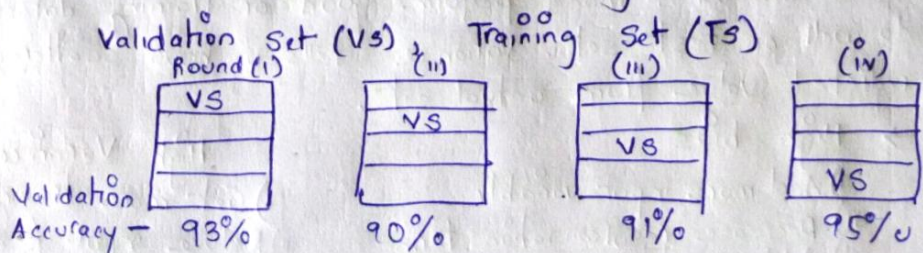 Validation Set (VS), Training Set (TS)
Round (i) (ii) (iii) (iv)
VS
VS
VS
VS
Validation
Accuracy - 93% 90% 91% 95%